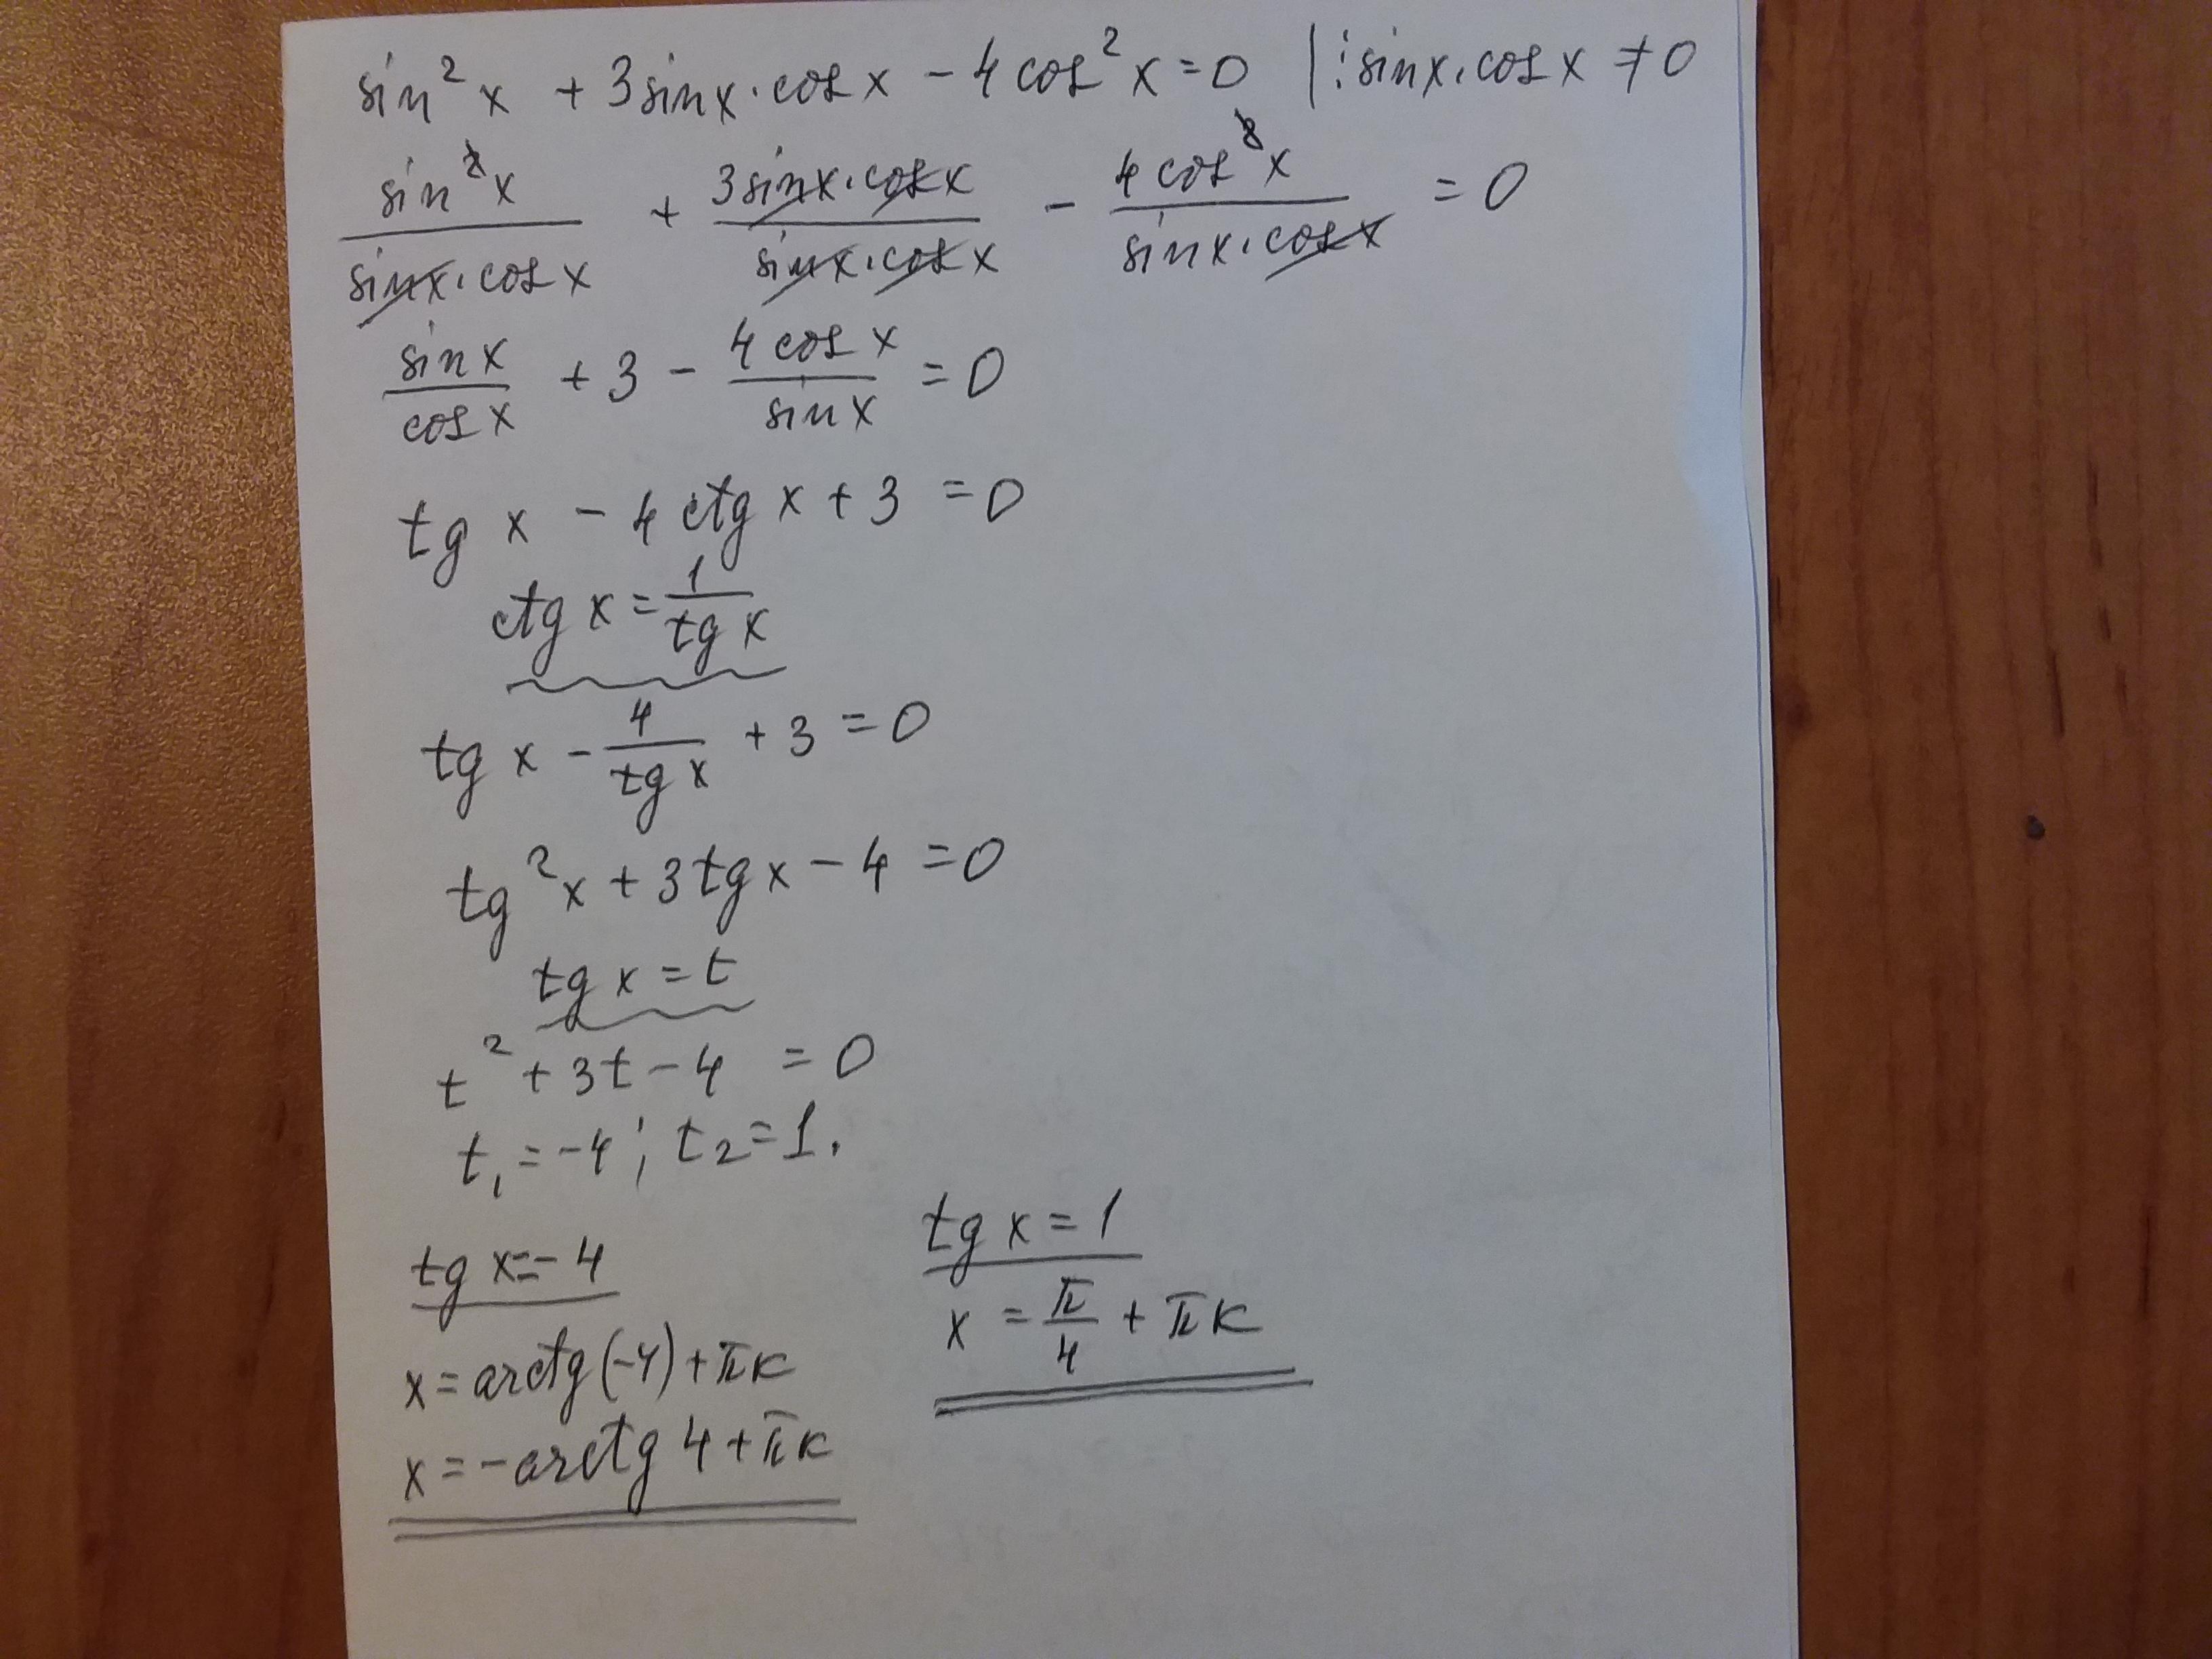 sin²x + 3sinx·cosx − 4cos²x = 0 | : sinx·cosx ≠ 0
sin²x/(sinx·cosx) + 3sinx·cosx/(sinx·cosx) − 4cos²x/(sinx·cosx) = 0
sinx/cosx + 3 − 4cosx/sinx = 0
tg x − 4ctg x + 3 = 0
ctg x = 1/tg x
tg x − 4/tg x + 3 = 0
tg²x + 3tg x − 4 = 0
tg x = t
t² + 3t − 4 = 0
t₁ = −4; t₂ = 1.
tg x = −4
x = arctg(−4) + πк
x = −arctg 4 + πк
tg x = 1
x = π/4 + πк